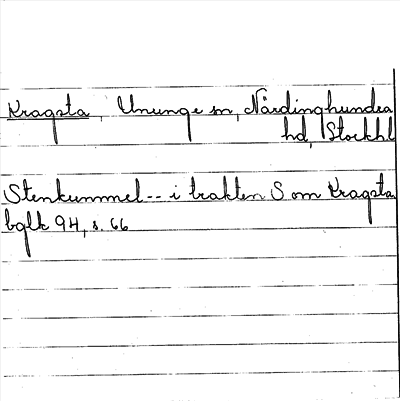 Kragsta, Ununge sn, Närdinghundra
hd, Stockhl
Stenkummel -- i trakten S om Kragsta.
bglk 94, s. 66